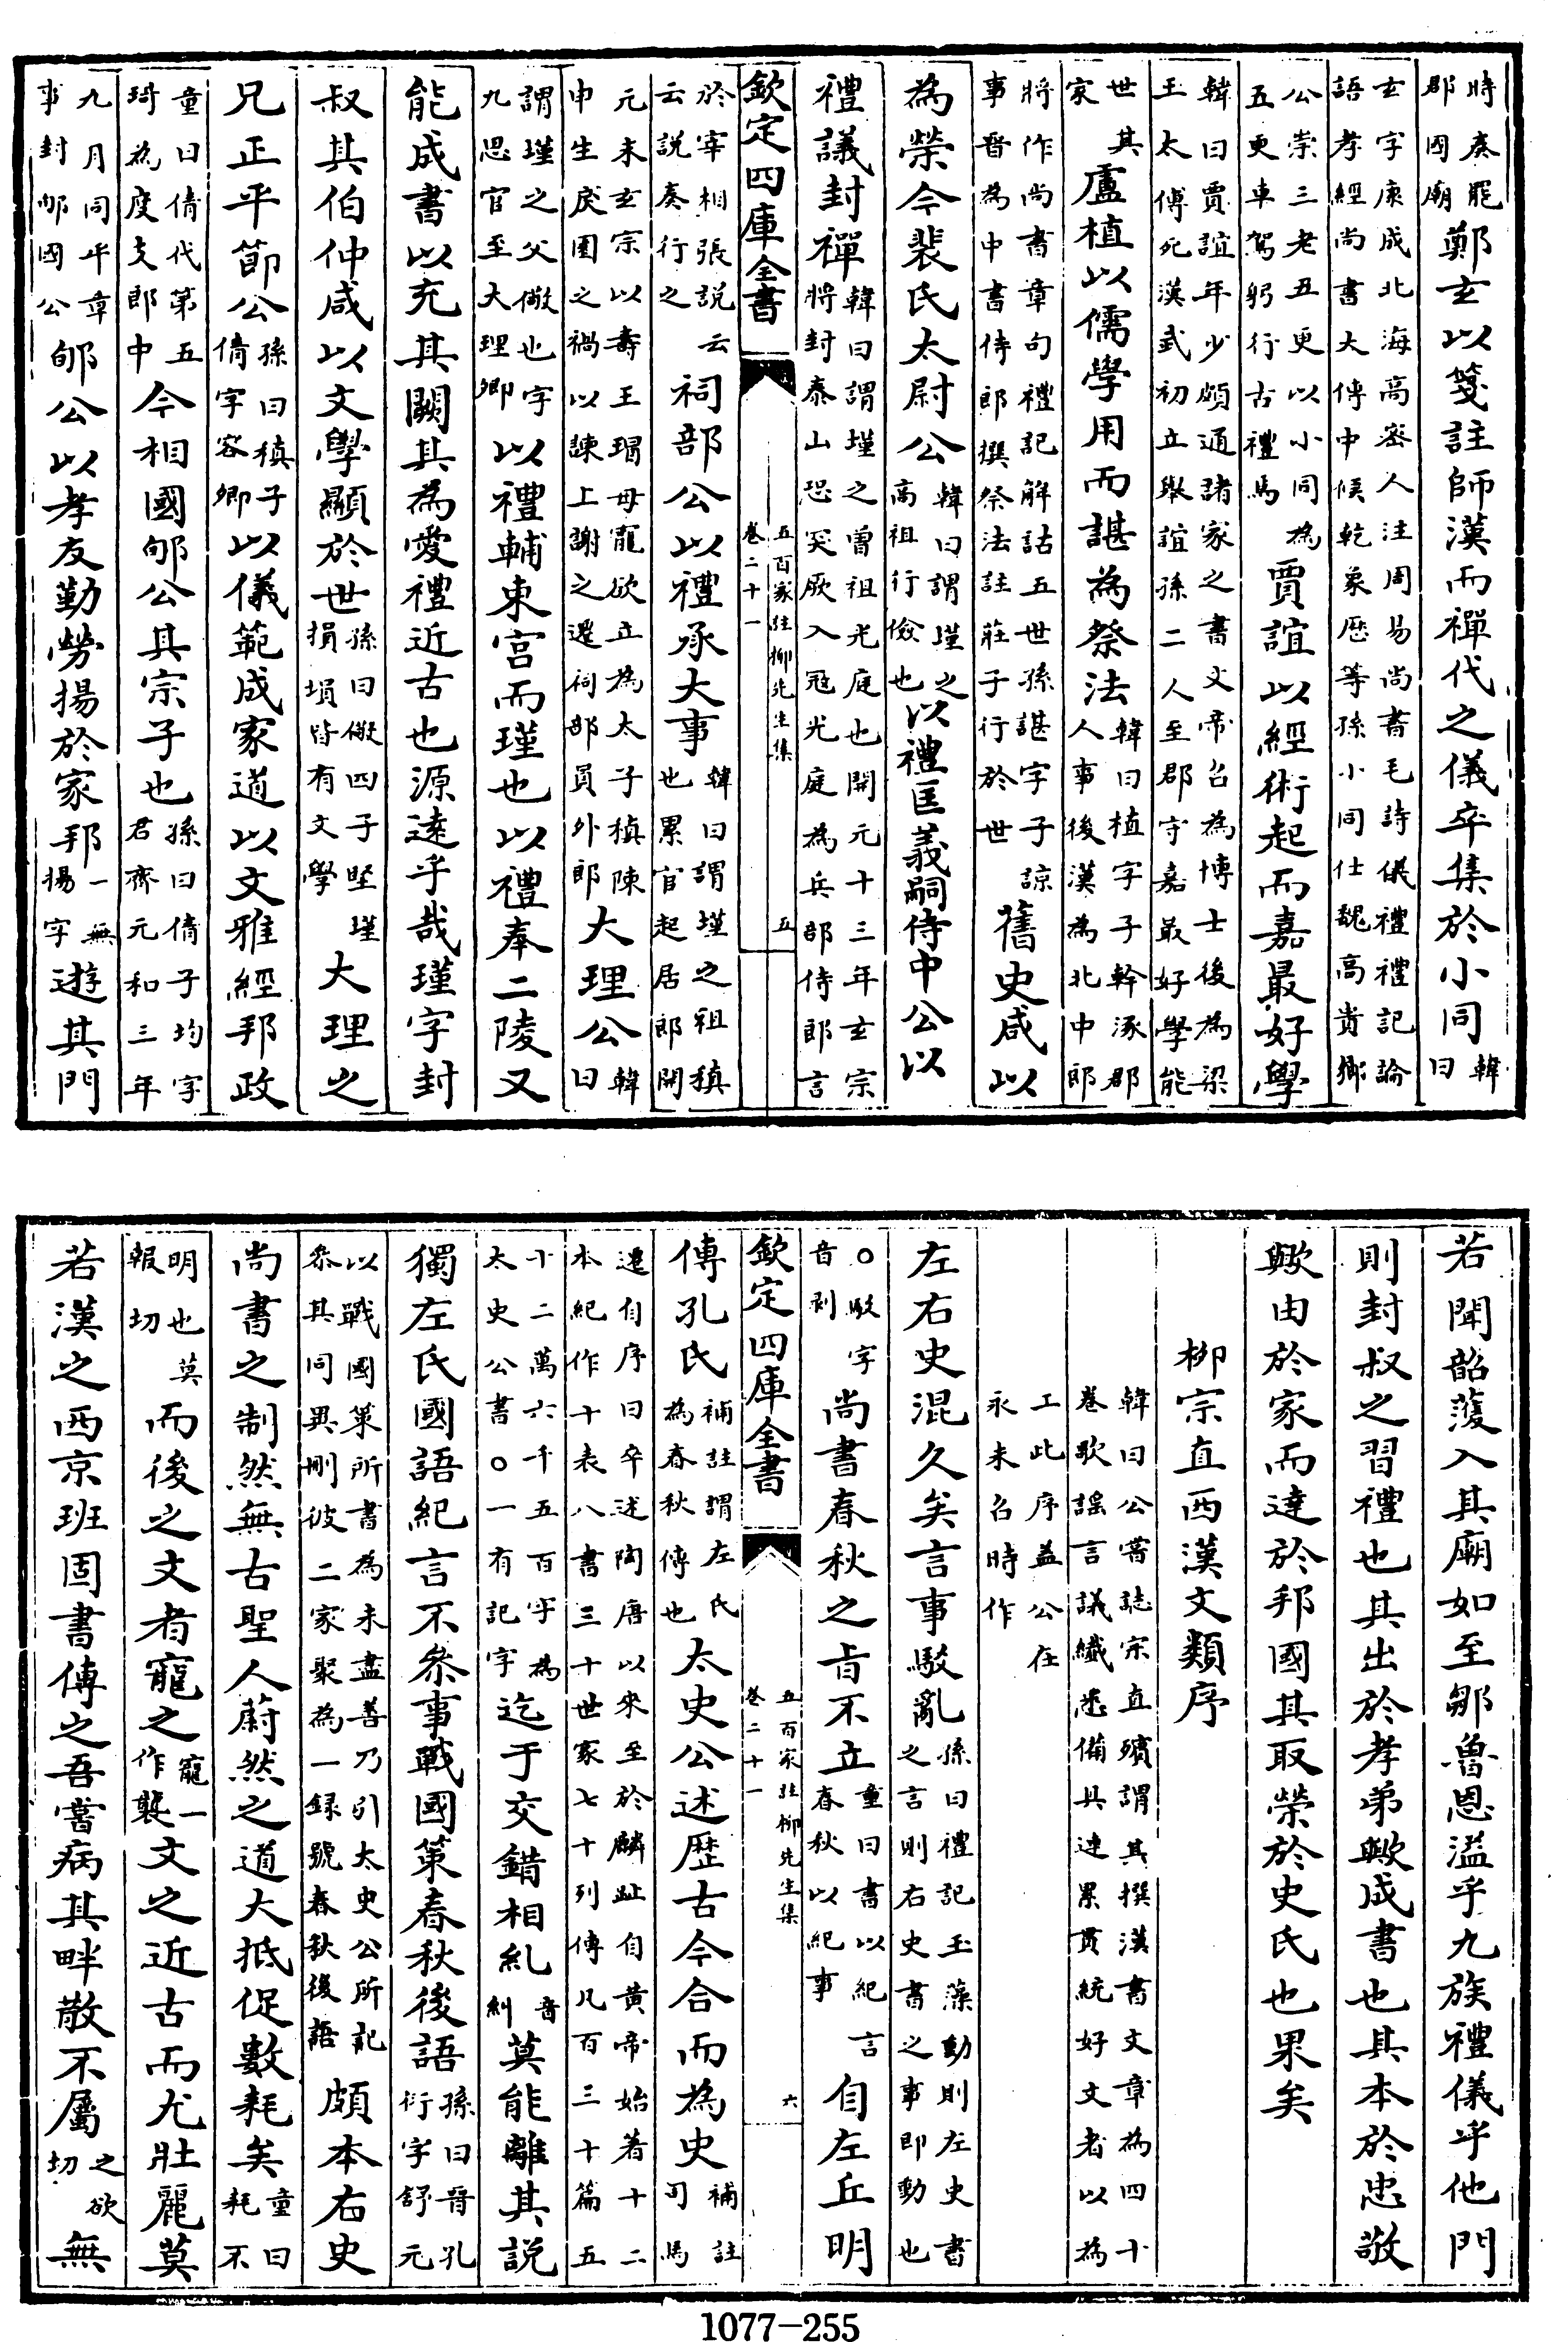 時奏罷
郡國廟鄭玄以箋註師漢而禪代之儀卒集於小同韓
曰
玄字康成北海高密人注周易尚書毛詩儀禮禮記論
語孝經尚書大傳中候乾象歷等孫小同仕魏高貴鄉
公崇三老丑更以小同為
五更車駕躬行古禮馬賈誼以經術起而嘉最好學
韓曰賈誼年少頗通諸家之書文帝召為博士後為梁
王太傅死漢武初立舉誼孫二人至郡守嘉最好學能
世其
家盧植以儒學用而諶為祭法韓曰植字子幹涿郡
人事後漢為北中郎
將作尚書章句禮記解詁五世孫諶字子諒
事晉為中書侍郎撰祭法註莊子行於世舊史咸以
為榮今裴氏太尉公韓曰謂瑾之
高祖行儉也以禮匡義嗣侍中公以
禮議封禪韓曰謂墐之曾祖光庭也開元十三年玄宗
將封泰山恐突厥入冦光庭為兵部侍郎言
欽定四庫全書
五百家註柳先生集
卷二十一
五
於宰相張説云
云説奏行之祠部公以禮承大事韓曰謂墐之祖稹
也累官起居郎開
元末玄宗以壽王瑁母寵欲立為太子稹陳
申生戾園之禍以諫上謝之遷祠部員外郎大理公韓
曰
謂墐之父儆也字
九思官至大理卿以禮輔東宮而瑾也以禮奉二陵又
能成書以充其闕其為愛禮近古也源遠乎哉瑾字封
叔其伯仲咸以文學顯於世孫曰儆四子堅墐
損塤皆有文學大理之
兄正平節公孫曰稹子
倩字容卿以儀範成家道以文雅經邦政
童曰倩代第五
琦為度支郎中今相國郇公其宗子也孫曰倩子均字
君齊元和三年
九月同平章
事封郇國公郇公以孝友勤勞揚於家邦一無
揚字遊其門
若聞韶濩入其廟如至鄒魯恩溢乎九族禮儀乎他門
則封叔之習禮也其出於孝弟歟成書也其本於忠敬
歟由於家而達於邦國其取榮於史氏也果矣
柳宗直西漢文類序
韓曰公嘗誌宗直殯謂其撰漢書文章為四十
卷歌謡言議纎悉備具連累貫統好文者以為
工此序蓋公在
永未召時作
左右史混久矣言事駁亂孫曰禮記玉藻動則左史書
之言則右史書之事即動也
○駁字
音剥尚書春秋之旨不立童曰書以紀言
春秋以紀事自左丘明
欽定四庫全書
五百家註柳先生集
卷二十一
六
傳孔氏補註謂左氏
為春秋傳也太史公述歴古今合而為史補註
司馬
遷自序曰卒述陶唐以來至於麟趾自黄帝始著十二
本紀作十表八書三十世家七十列傳凡百三十篇五
十二萬六千五百字為
太史公書○一有記字迄于交錯相糺音
糾莫能離其説
獨左氏國語紀言不叅事戰國策春秋後語孫曰晉孔
衍字舒元
以戰國策所書為未盡善乃引太史公所記
叅其同異刪彼二家聚為一録號春秋後語頗本右史
尚書之制然無古聖人蔚然之道大抵促數耗矣童曰
耗不
明也莫
報切而後之文者寵之寵一
作襲文之近古而尤壯麗莫
若漢之西京班固書傳之吾嘗病其畔散不屬之欲
切無
1077—255